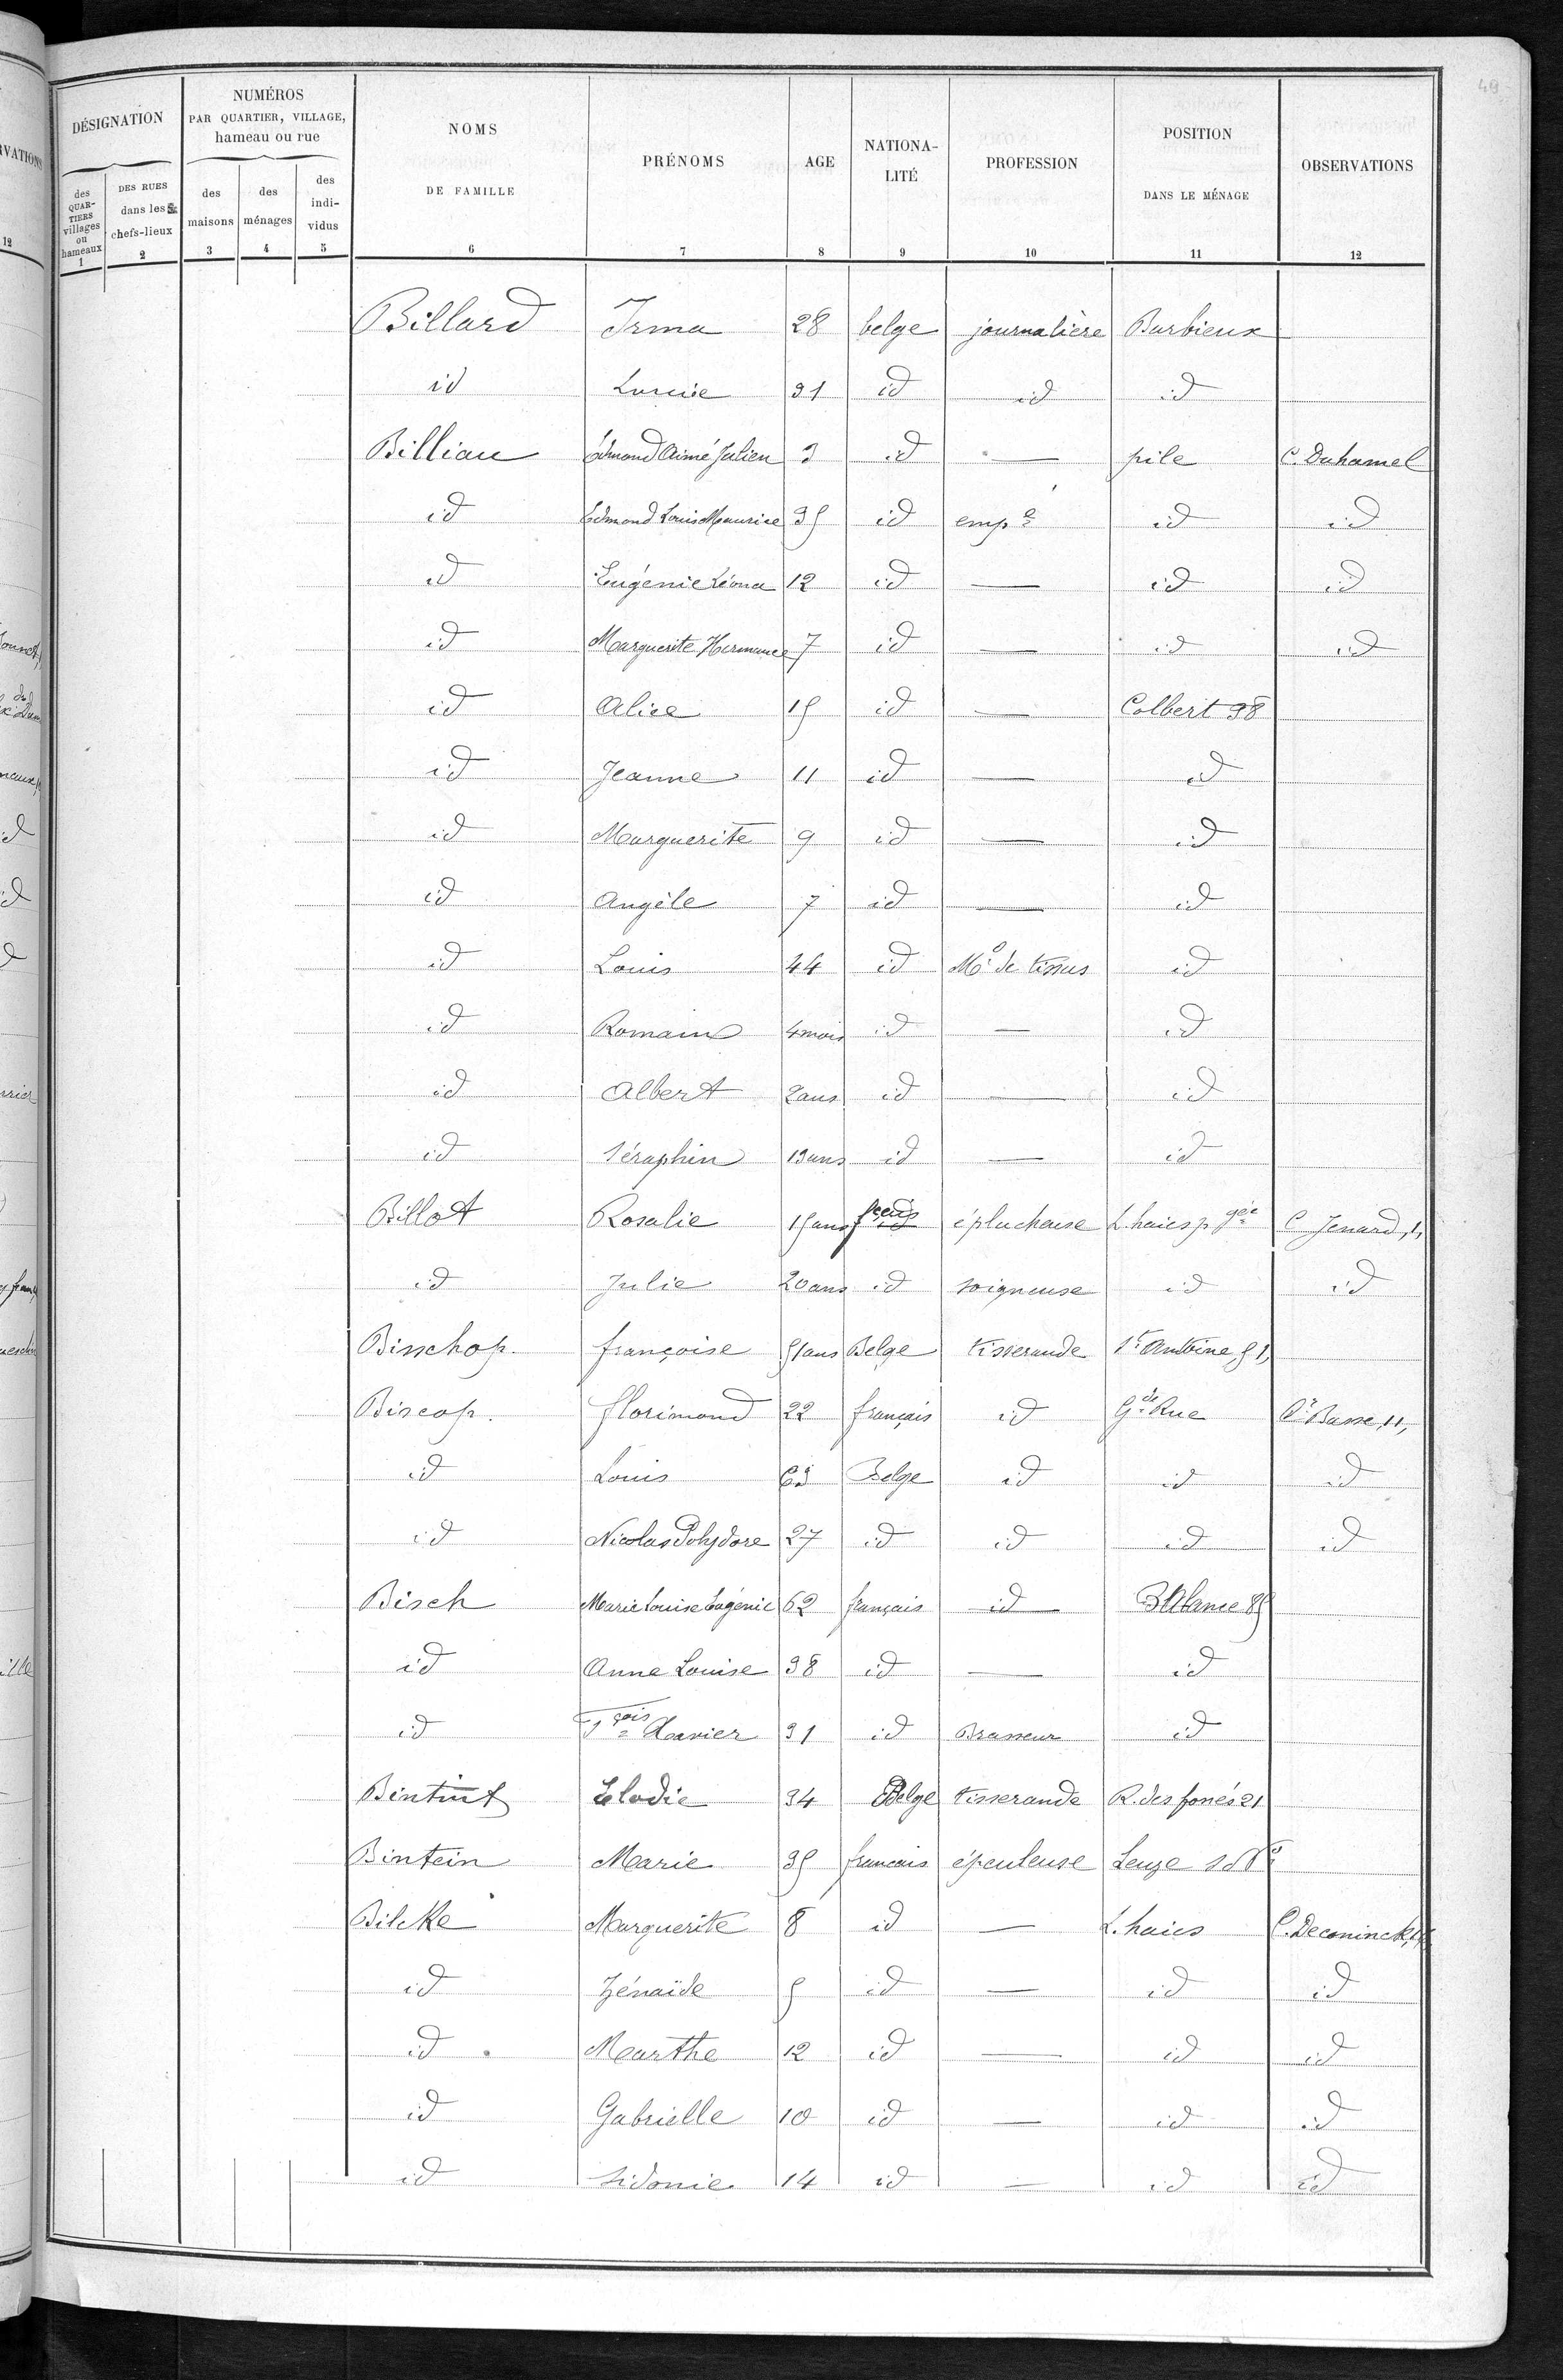 49
DÉSIGNATION | NUMÉROS PAR QUARTIER, VILLAGE, hameau ou rue | NOMS DE FAMILLE | PRÉNOMS | AGE | NATIONA-LITÉ | PROFESSION | POSITION DANS LE MÉNAGE | OBSERVATIONS
des QUAR-TIERS villages ou hameaux | DES RUES dans les chefs-lieux | des maisons | des ménages | des indi-vidus
1 | 2 | 3 | 4 | 5 | 6 | 7 | 8 | 9 | 10 | 11 | 12
Billard | Irma | 28 | belge | journalière | Barbieux
id | Lucie | 31 | id | id | id
Billiau | Edmond Aimé Julien | 3 | id | — | pile | C. Duhamel
id | Edmond Louis Maurice | 35 | id | empé | id | id
id | Eugénie Léona | 12 | id | — | id | id
id | Marguerite Hermance | 7 | id | — | id | id
id | Alice | 15 | id | — | Colbert 38
id | Jeanne | 11 | id | — | id
id | Marguerite | 9 | id | — | id
id | Angèle | 7 | id | — | id
id | Louis | 44 | id | Md de tissus | id
id | Romain | 4 mois | id | — | id
id | Albert | 2 ans | id | — | id
id | Séraphin | 13 ans | id | — | id
Billot | Rosalie | 15 ans | | éplucheuse | L. haies p gée | C Jenard, 1,
id | Julie | 20 ans | id | soigneuse | id | id
Bisschop. | françoise | 51 ans | Belge | tisserande | St Antoine, 51,
Biscop. | florimond | 22 | français | id | Gde Rue | Cr Basse, 11,
id | Louis | 63 | Belge | id | id | id
id | Nicolas Polydore | 27 | id | id | id | id
Bisch | Marie Louise Eugénie | 62 | français | id | 85
id | Anne Louise | 38 | id | — | id
id | Fçois Xavier | 31 | id | Brasseur | id
Bintint | Elodie | 34 | Belge | tisserande | R. des fossés 21
Bintein | Marie | 35 | francais | épeuleuse | Leuze
Bilcke | Marguerite | 8 | id | — | L. haies | C. Deconinck,
id | Zénaïde | 5 | id | — | id | id
id | Marthe | 12 | id | — | id | id
id | Gabrielle | 10 | id | — | id | id
id | Sidonie | 14 | id | — | id | id